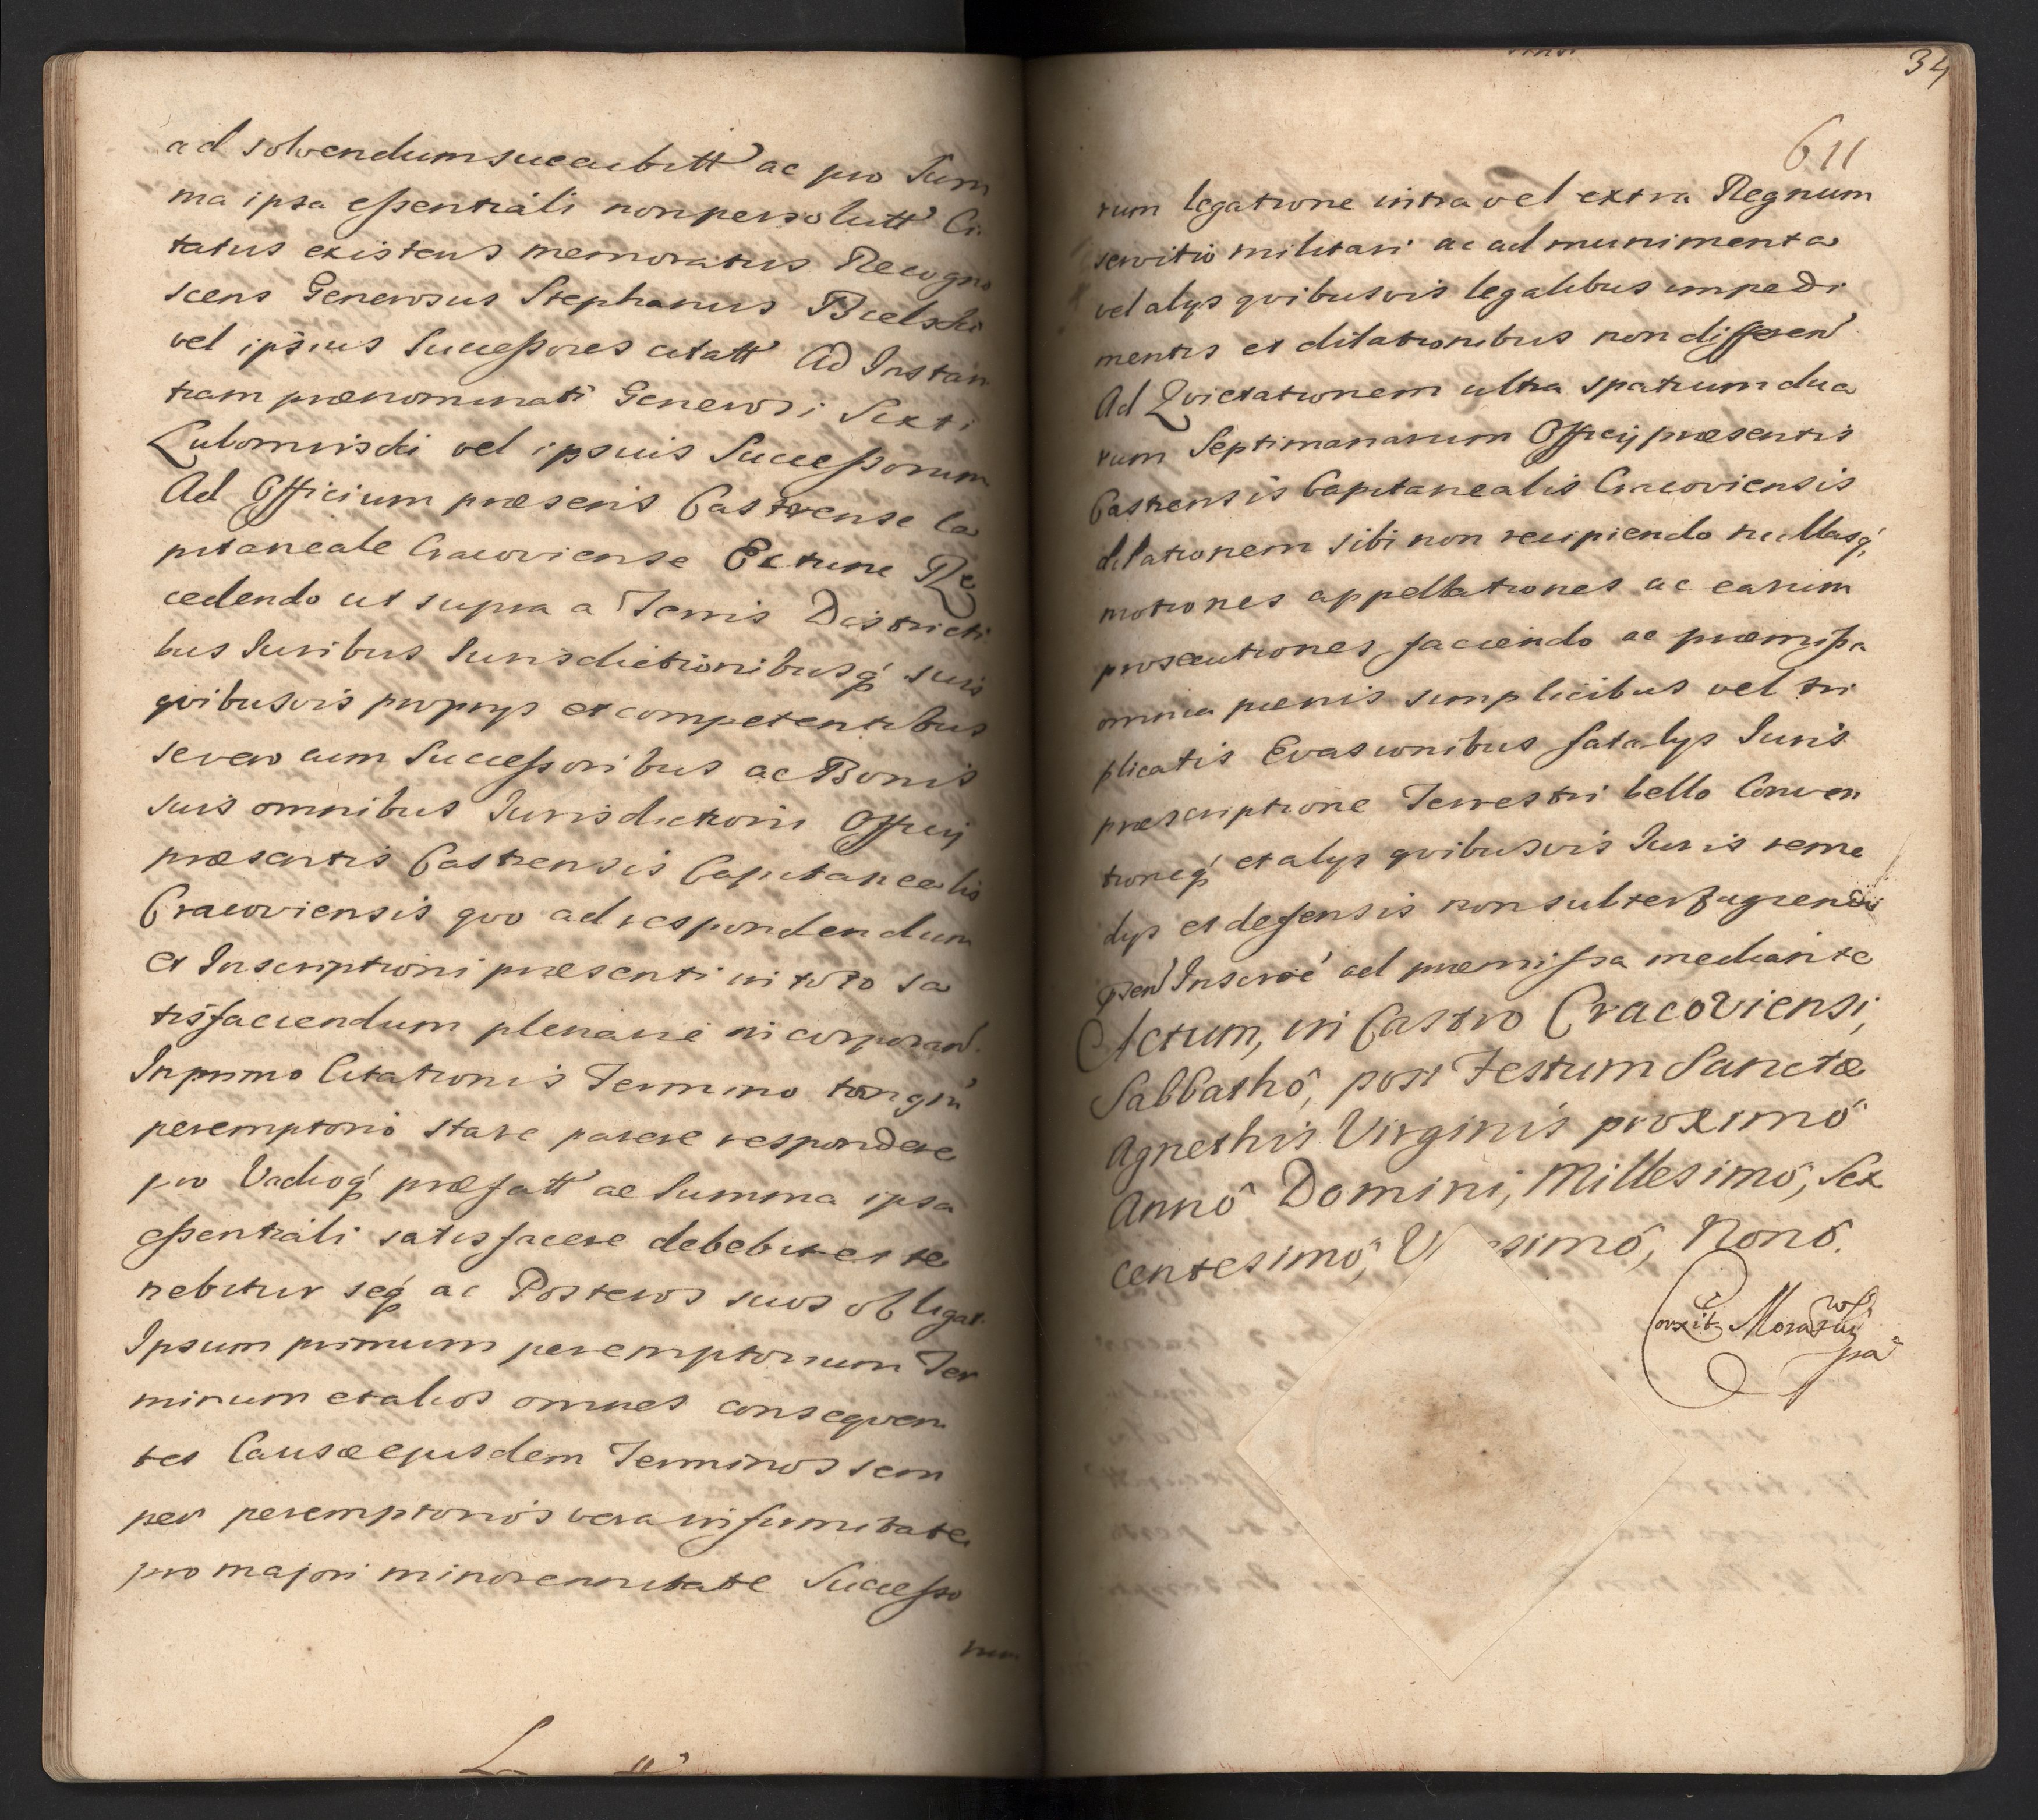 ad solvendum succubitt ac pro Sum
ma ipsa essentiali non persolutt Ci
tatus existens memoratus Recogno
scens Generosus Stephanus Bielski
vel ipsius Successores citatt Ad Instan
tiam prænominati Generosi Sixti
Lubomirski vel ipsius Successorum
Ad Officium præsens Castrense Ca
pitaneale Cracoviense Ex tunc Re
cedendo ut supra a Terris Districti
bus Iuribus Iurisdictionibusq́ suis
qvibusvis proprys et competentibus
se vero cum Successoribus ac Bonis
suis omnibus Iurisdictioni Officij
præsentis Castrensis Capitanealis
Cracoviensis qvo ad respondendum
et Inscriptioni præsenti in toto sa
tisfaciendum plenarie incorporan
In primo Citationis Termino tanq̃
peremptorio stare parere respondere
pro Vadioq́ præfatt ac Summa ipsa
essentiali satisfacere debebit et te
nebitur seq́ ac Posteros suos obligat
Ipsum primum peremptorium Ter
minum et alios omnes conseqven
tes Causæ ejusdem Terminos sem
per peremptorios vera infirmitate
pro majori minorennitate Successo
rum
34
611
rum legatione intra vel extra Regnum
servitio militari ac ad munimenta
vel alys qvibusvis legalibus impedi
mentis et dilationibus non differen
Ad Qvictationem ultra spatium dua
rum Septimanarum Officij præsentis
Castrensis Capitanealis Cracoviensis
dilationem sibi non recipiendo nullasq́
motiones appellationes ac earum
prosecutiones faciendo ac præmissa
omnia pænis simplicibus vel tri
plicatis Evasionibus fatalys Iuris
præscriptione Terrestri bello Conven
tioneq́ et alys qvibusvis Iuris reme
dys et defensis non subterfugiendis
ad præmissa mediante
Actum, in Castro Cracoviensi,
Sabbathô, post Festum Sanctæ
Agnethis Virginis proximô
Annô Domini, Millesimô, Sex
centesimô, V simô, Nonô.